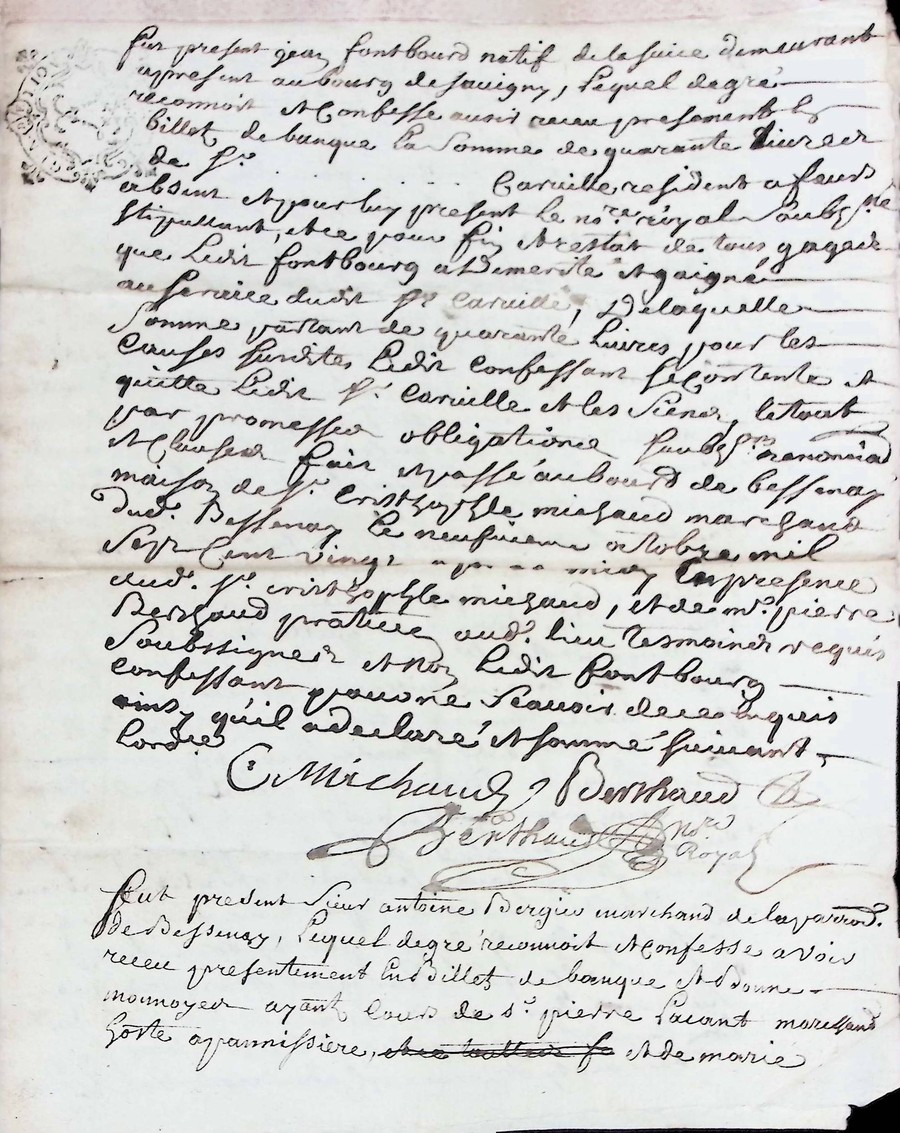 fut present jean fontbourd natif de la suice demeurant
apresent au bourg de sauigny, Lequel de gré
reconnoit et Confesse auoir receu presentement En
billet de banque La Somme de quarante Liures
de Sr.
Caruille resident a feurs
absent et pour luy present Le nore. royal Soubzne.
stipullant, et ce pour fin et restat de tous gages
que Ledit fontbourg a Demerité et gaigné
au seruice dudit Sr. Caruille, De laquelle
Somme partant de quarante Liures pour les
Causes susdites Ledit Confessant se Contente et
quitte Ledit Sr. Caruille et les Siens, le tout
par promesses obligations renonciaons
et Clauses fait et passé au bourd de bessenay
maison de Sr. Cristhophle michaud marchand
dud. Bessenay Le neufuieme octobre mil
Sept Cent vingt midy En presence
dud. Sr. Cristhophle michaud, et de me. pierre
Berthaud praticien aud. lieu Tesmoins requis
Soubssignes et non Ledit fontbourg
Confessant pour ne Scauoir de ce Enquis
ainsy qu'il a declaré et sommé suiuant
Lordce.
C Michaud Berthaud
Berthaud nore
Royal
Fut present Sieur antoine Bergier marchand de la parroe.
de Bessenay, Lequel de gré reconnoit et Confesse avoir
receu presentement En Billet de banque et Bonne
monnoyes ayant Cours de Sr. pierre marchand
hoste a pannissiere, et de marie